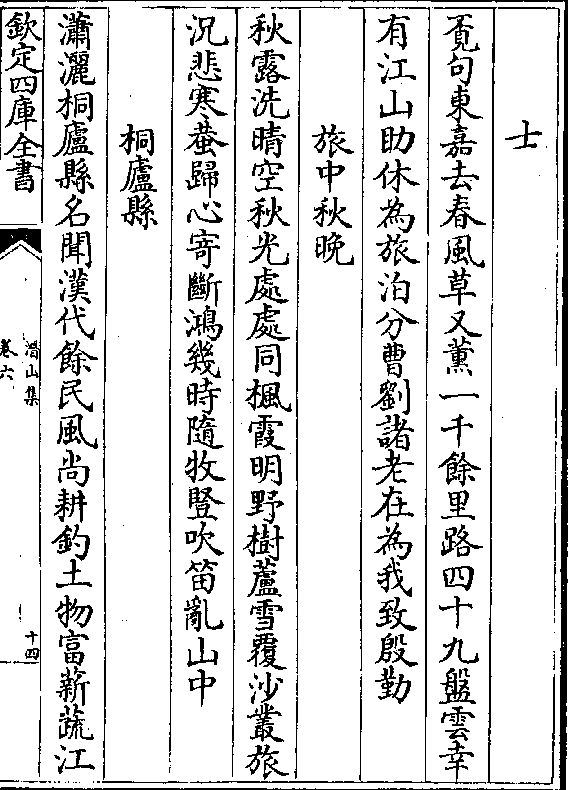 士
覔句東嘉去春風草又薰一千餘里路四十九盤雲幸
有江山助休為旅泊分曹劉諸老在為我致殷勤
旅中秋晚
秋露洗晴空秋光處處同楓霞明野樹蘆雪覆沙叢旅
況悲寒蛩歸心寄斷鴻幾時隨牧豎吹笛亂山中
桐廬縣
瀟灑桐廬縣名聞漢代餘民風尚耕釣土物富薪蔬江
欽定四庫全書
潛山集
卷六
十四